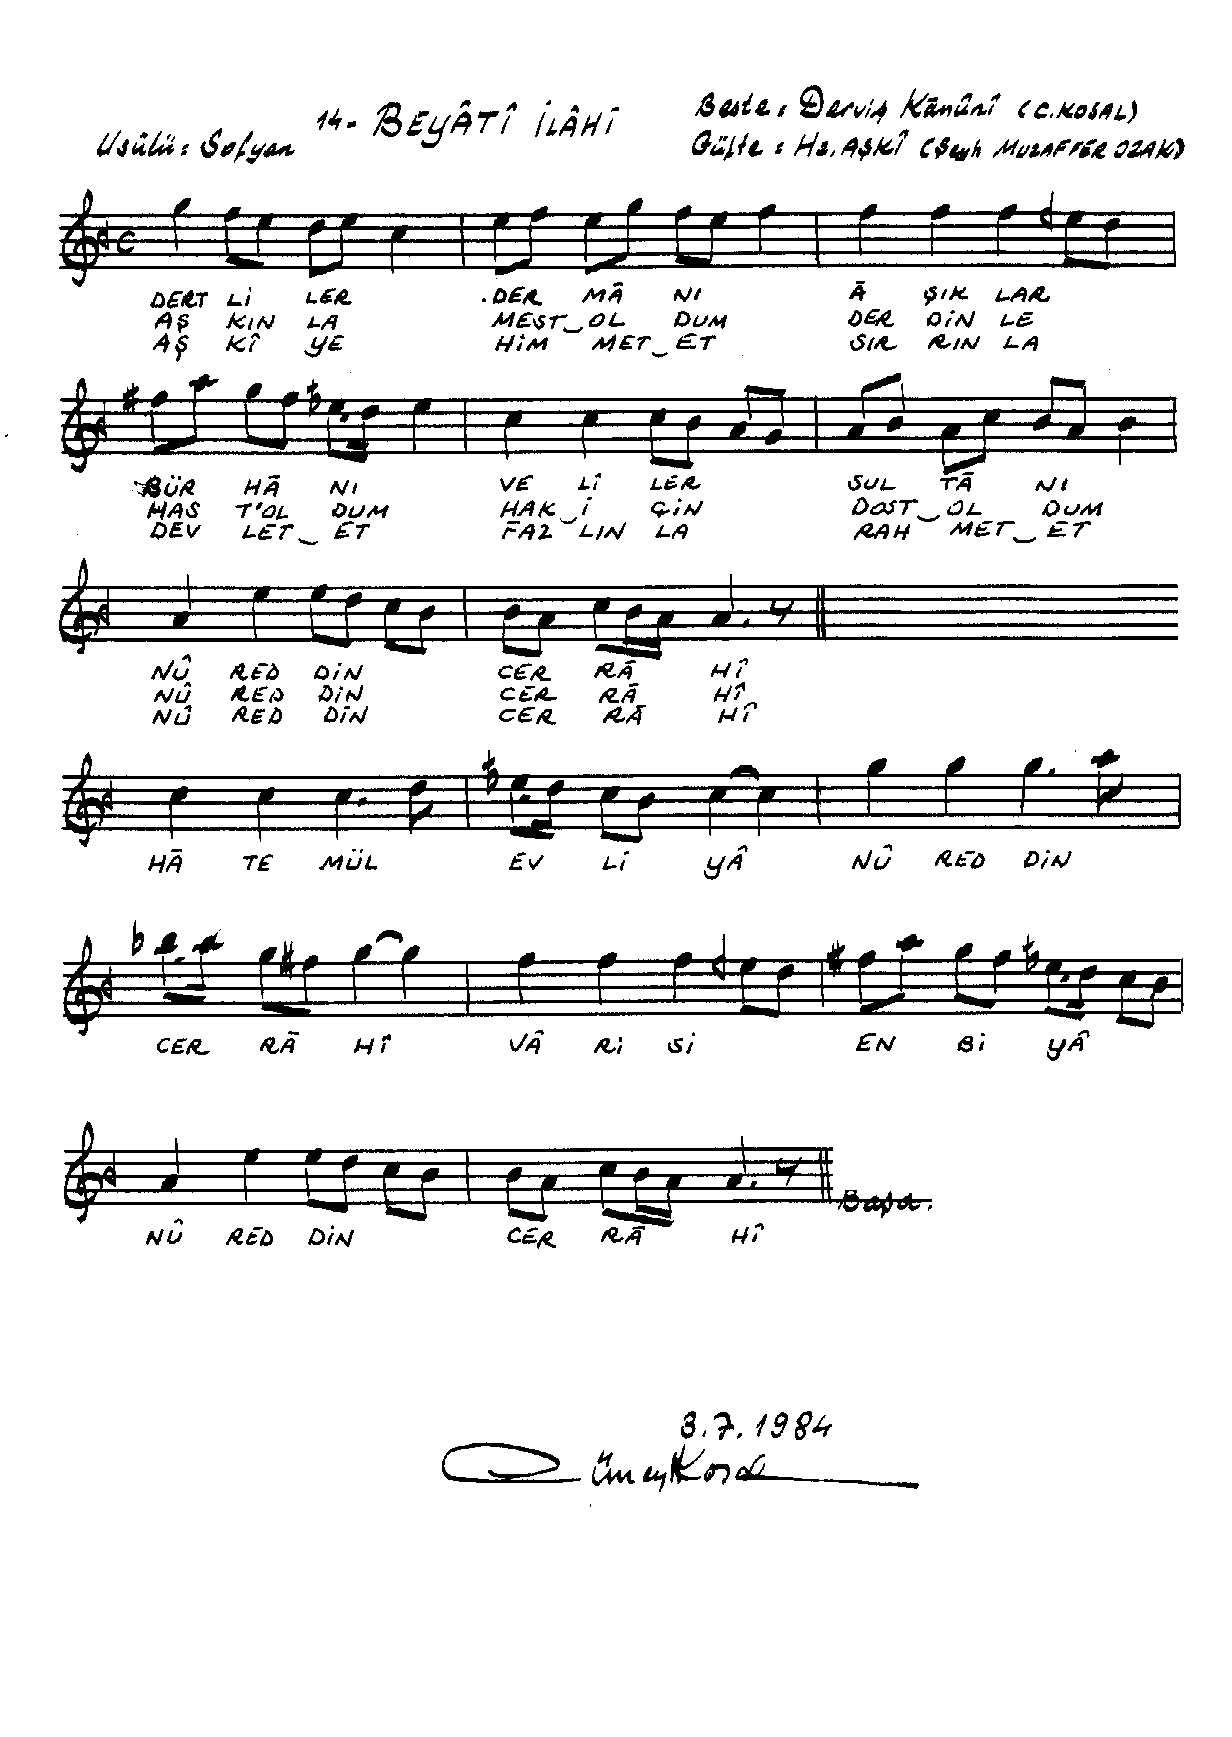 14- BEYÂTÎ İLÂHÎ
Beste: Derviş Kānûnî (C. KOSAL)
Usûlü: Sofyan
Güfte: Hz. AŞKÎ (Şeyh MUZAFFER OZAK)
DERT Lİ LER DER MĀ NI Ā ŞIK LAR
AŞ KIN LA MEST_OL DUM DER DİN LE
AŞ KÎ YE HİM MET_ET SIR RIN LA
BÜR HĀ NI VE LÎ LER SUL TĀ NI
HAS T'OL DUM HAK_İ ÇİN DOST_OL DUM
DEV LET_ET FAZ LIN LA RAH MET_ET
NÛ RED DİN CER RĀ HÎ
NÛ RED DİN CER RĀ HÎ
NÛ RED DİN CER RĀ HÎ
HĀ TE MÜL EV Lİ YÂ NÛ RED DİN
CER RĀ HÎ VÂ Rİ Sİ EN Bİ YÂ
Başa.
NÛ RED DİN CER RĀ HÎ
3.7.1984
Cüneyt Kosal